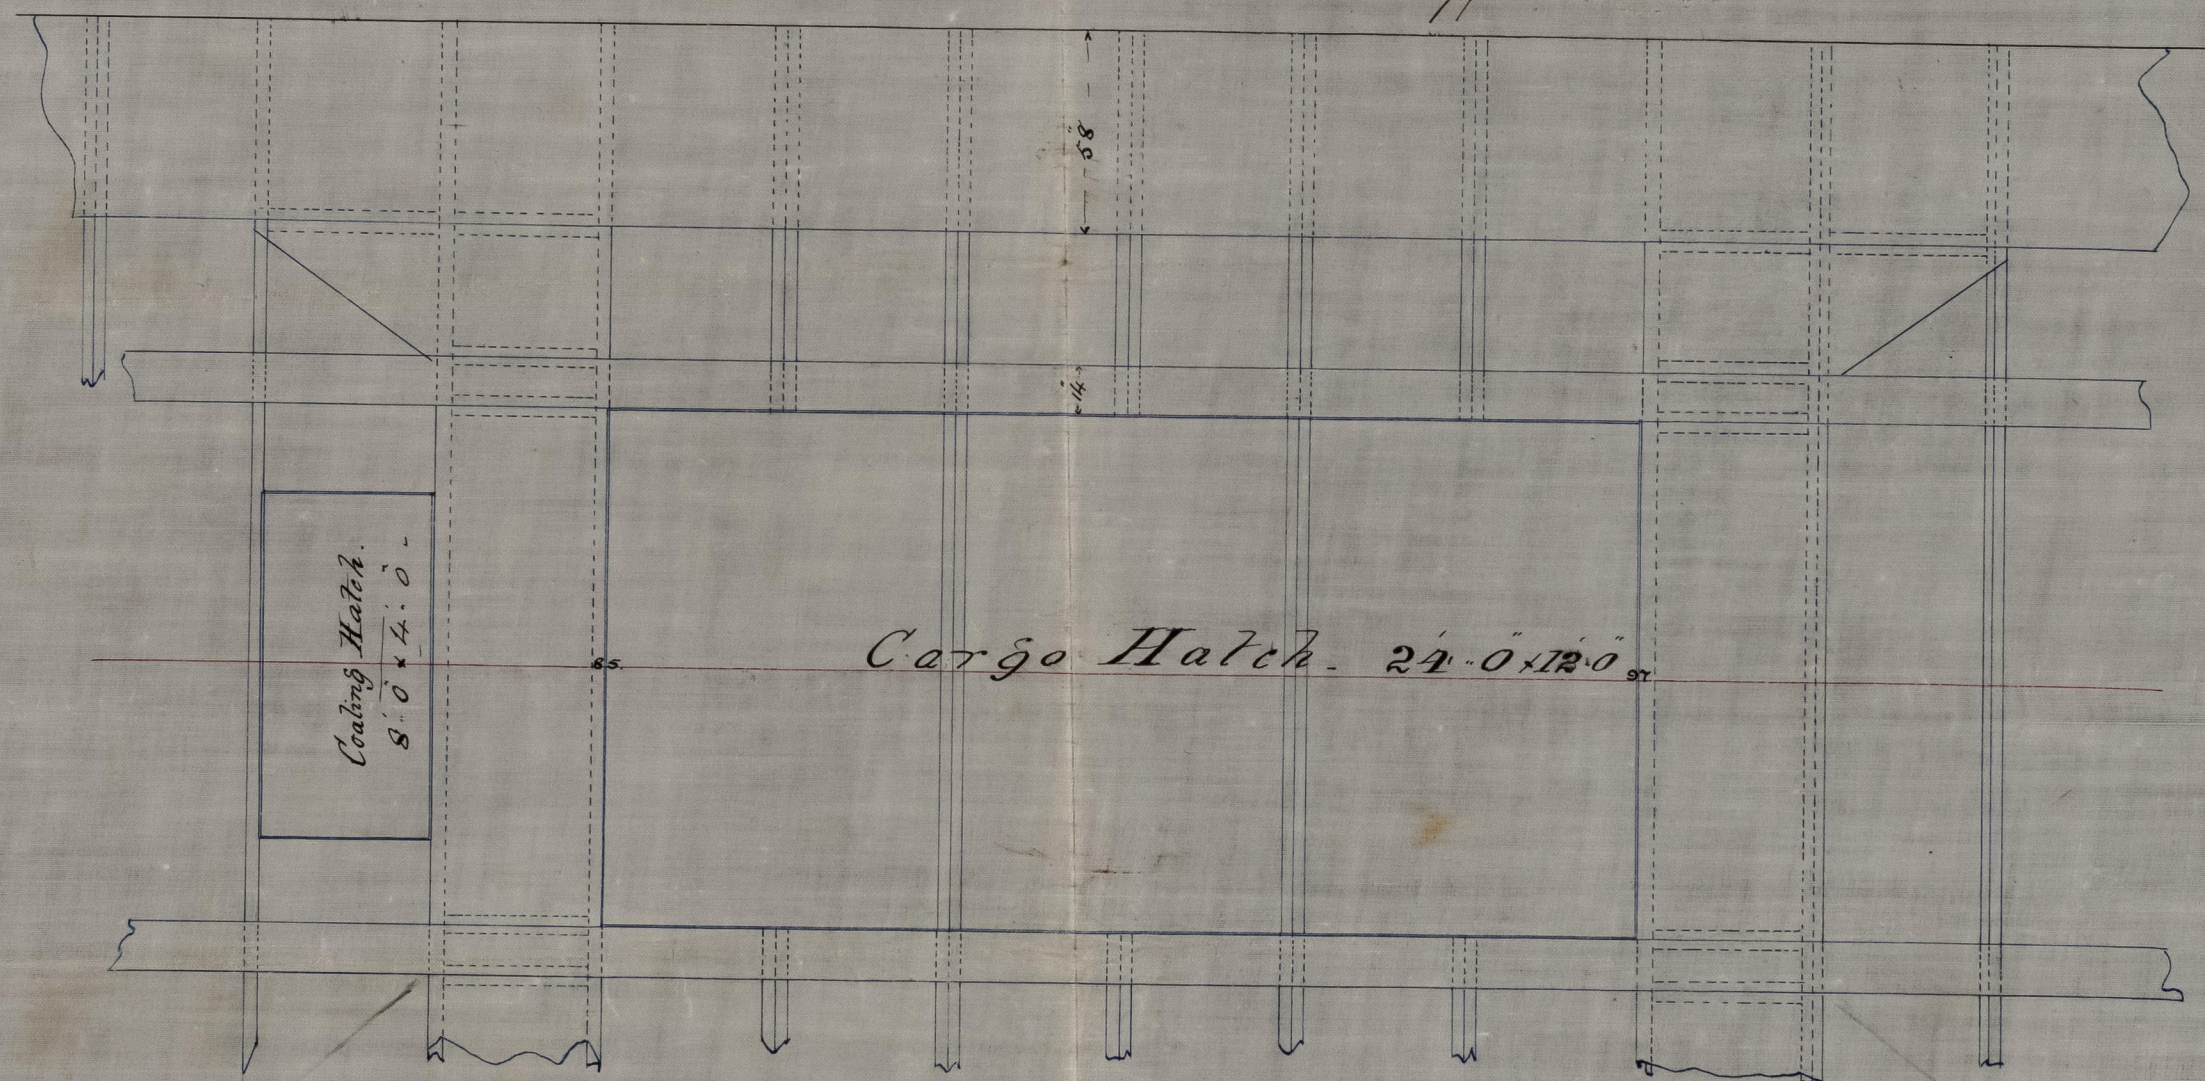 58"
14"
Coaling Hatch.
8'..0" × 4'..0"
85.
Cargo Hatch. 24'..0" × 12'..0"
97